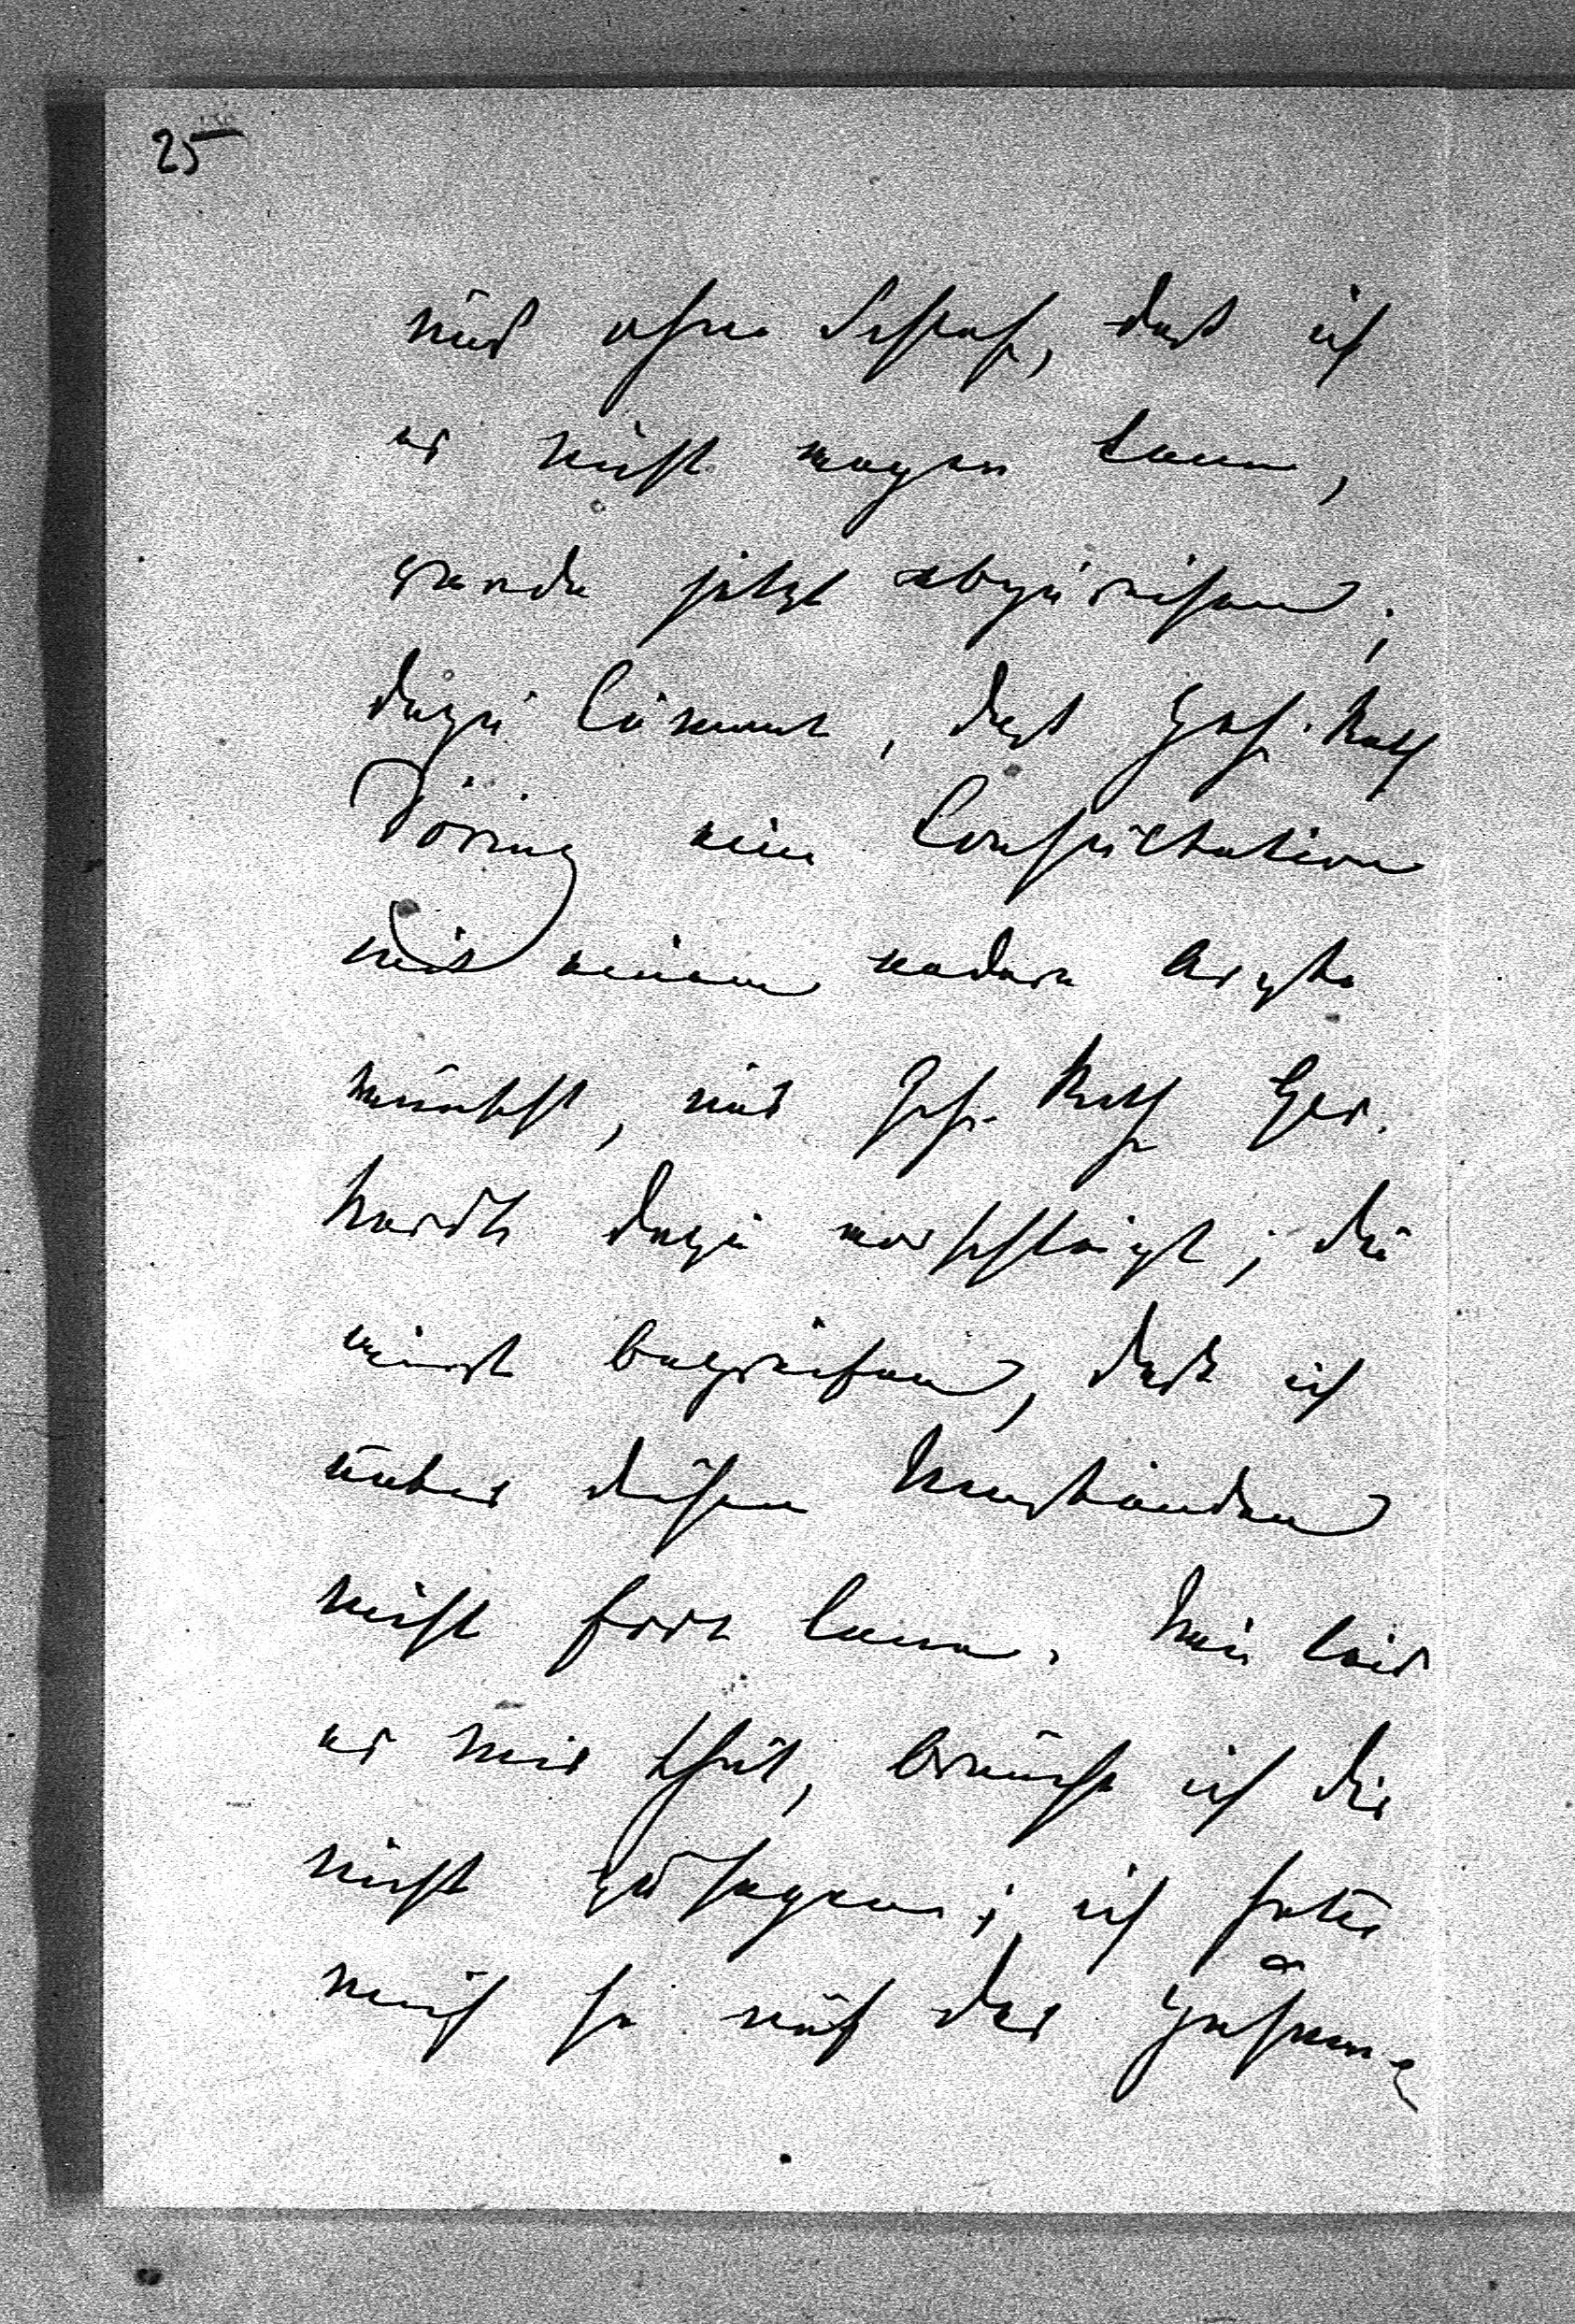 25
und ohne Schlaf, daß ich
es nicht wagen kann,
grade jetzt abzureisen;
dazu kömmt, daß Geh. Rath
Döring eine Consultation
mit einem andern Arzte
wünscht, und Geh. Rath Ger-
hardt dazu vorschlägt; Du
wirst begreifen, daß ich
unter diesen Umständen
nicht fort kann. Wie leid
es mir thut, brauche ich Dir
nicht zu sagen; ich hatte
mich so auf das